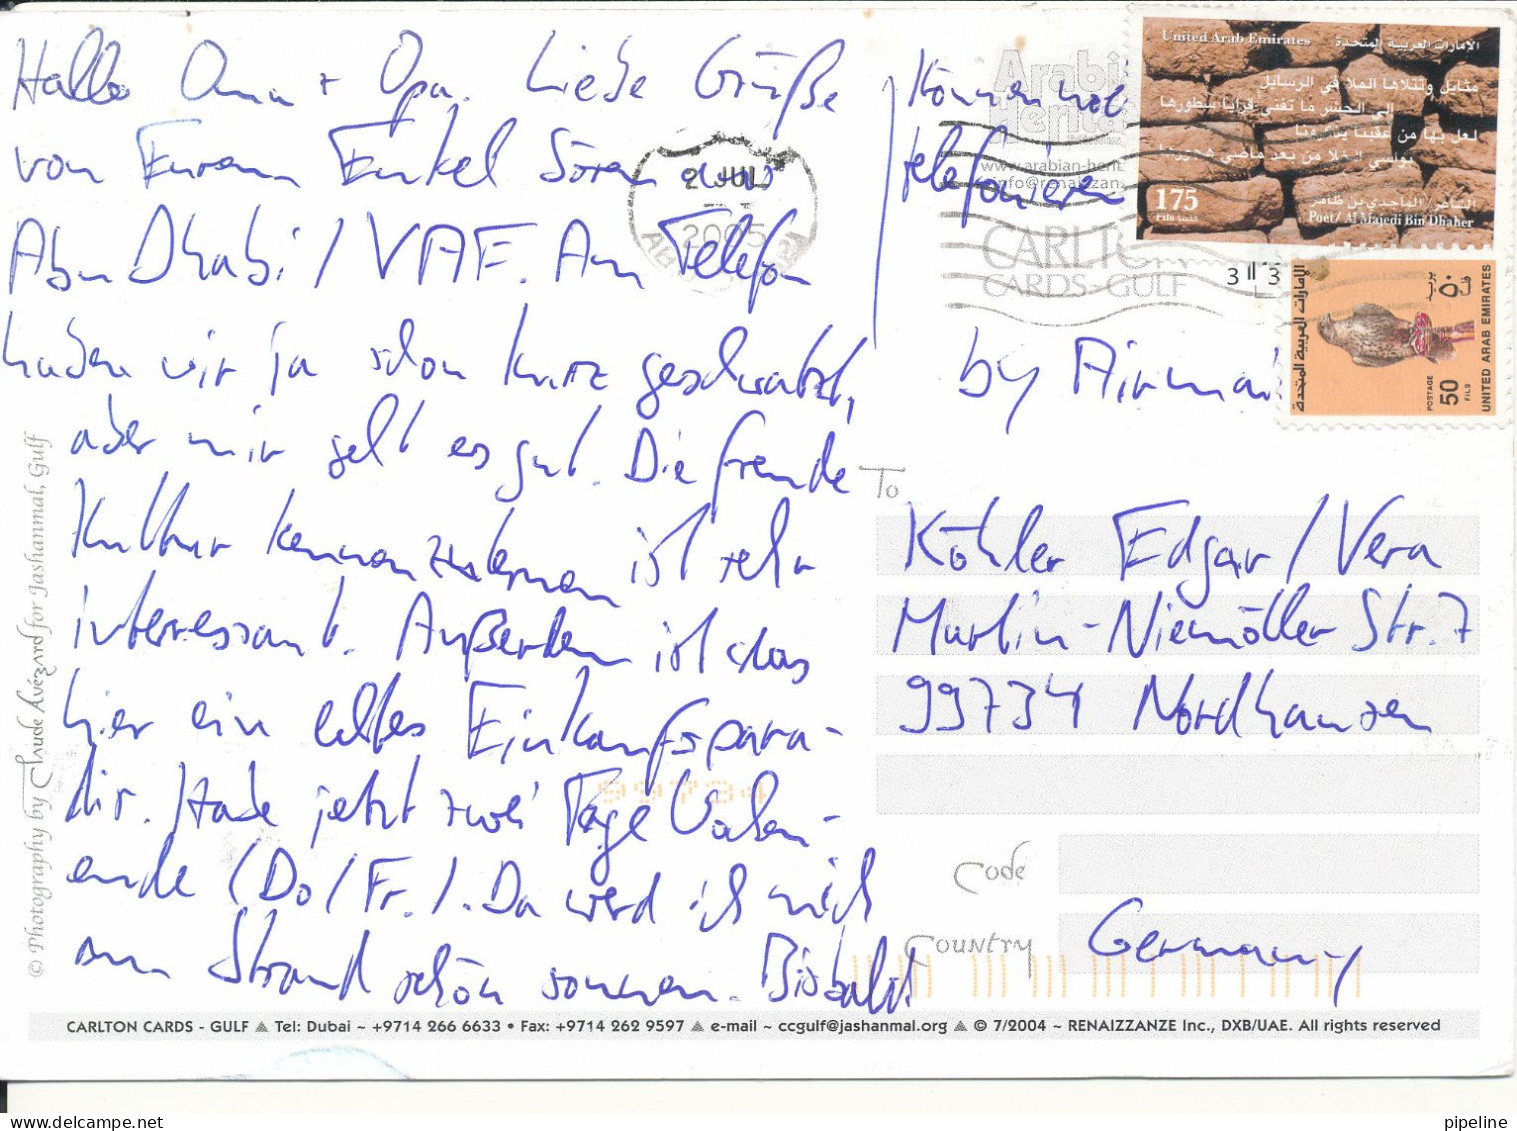 Hallo Oma + Opa. Liebe Grüße
von Eurem Enkel Sören aus
Abu Dhabi / VAE. Am Telefon
haben wir ja schon kurz geschwatzt,
aber mir geht es gut. Die fremde
Kultur kennenzulernen ist sehr
interessant. Außerdem ist das
hier ein echtes Einkaufspara-
dis. Habe jetzt zwei Tage Wochen-
ende (Do/Fr.). Da werd ich mich
am Strand schön sonnen. Bis bald!
Können
telefonieren
by Airmai
To
Köhler Edgar / Vera
Martin-Niemöller Str. 7
99734 Nordhausen
99734
Code
Country
Germany
United Arab Emirates
الإمارات العربية المتحدة
175
Fils
الشاعر/الماجدي بن ظاهر
Poet/ Al Majedi Bin Dhaher
الإمارات العربية المتحدة
بريد
٥٠
فلسا
POSTAGE
50
FILS
UNITED ARAB EMIRATES
2 JUL
2005
Arabi
Herita
www.arabian-herit
info@renaizzan
CARLTO
CARDS-GULF
3 || 3
© Photography by Claude Avézard for Jashanmal, Gulf
CARLTON CARDS - GULF ▲ Tel: Dubai ~ +9714 266 6633 • Fax: +9714 262 9597 ▲ e-mail ~ ccgulf@jashanmal.org ▲ © 7/2004 ~ RENAIZZANZE Inc., DXB/UAE. All rights reserved
pipeline